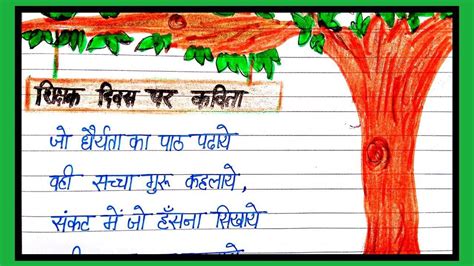 शिक्षक दिवस पर कविता
जो धैर्यता का पाठ पढाये
वही सच्चा गुरू कहलाये,
संकट में जो हँसना सिखाये